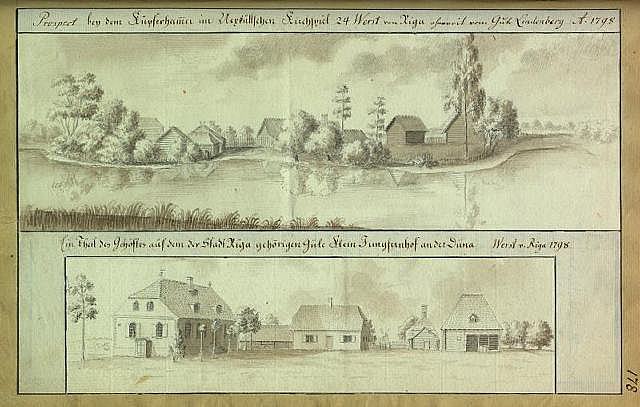 Prospect bey dem Kupferhamer im Uexküllschen Kirchspiel 24 Werst von Riga ohnweit vom Guth Lindenberg A: 1798
Ein Theil des Gehöftes auf dem der Stadt Riga gehörigen Gute Klein Jungfernhof an der Düna Werst v. Riga 1798.
178